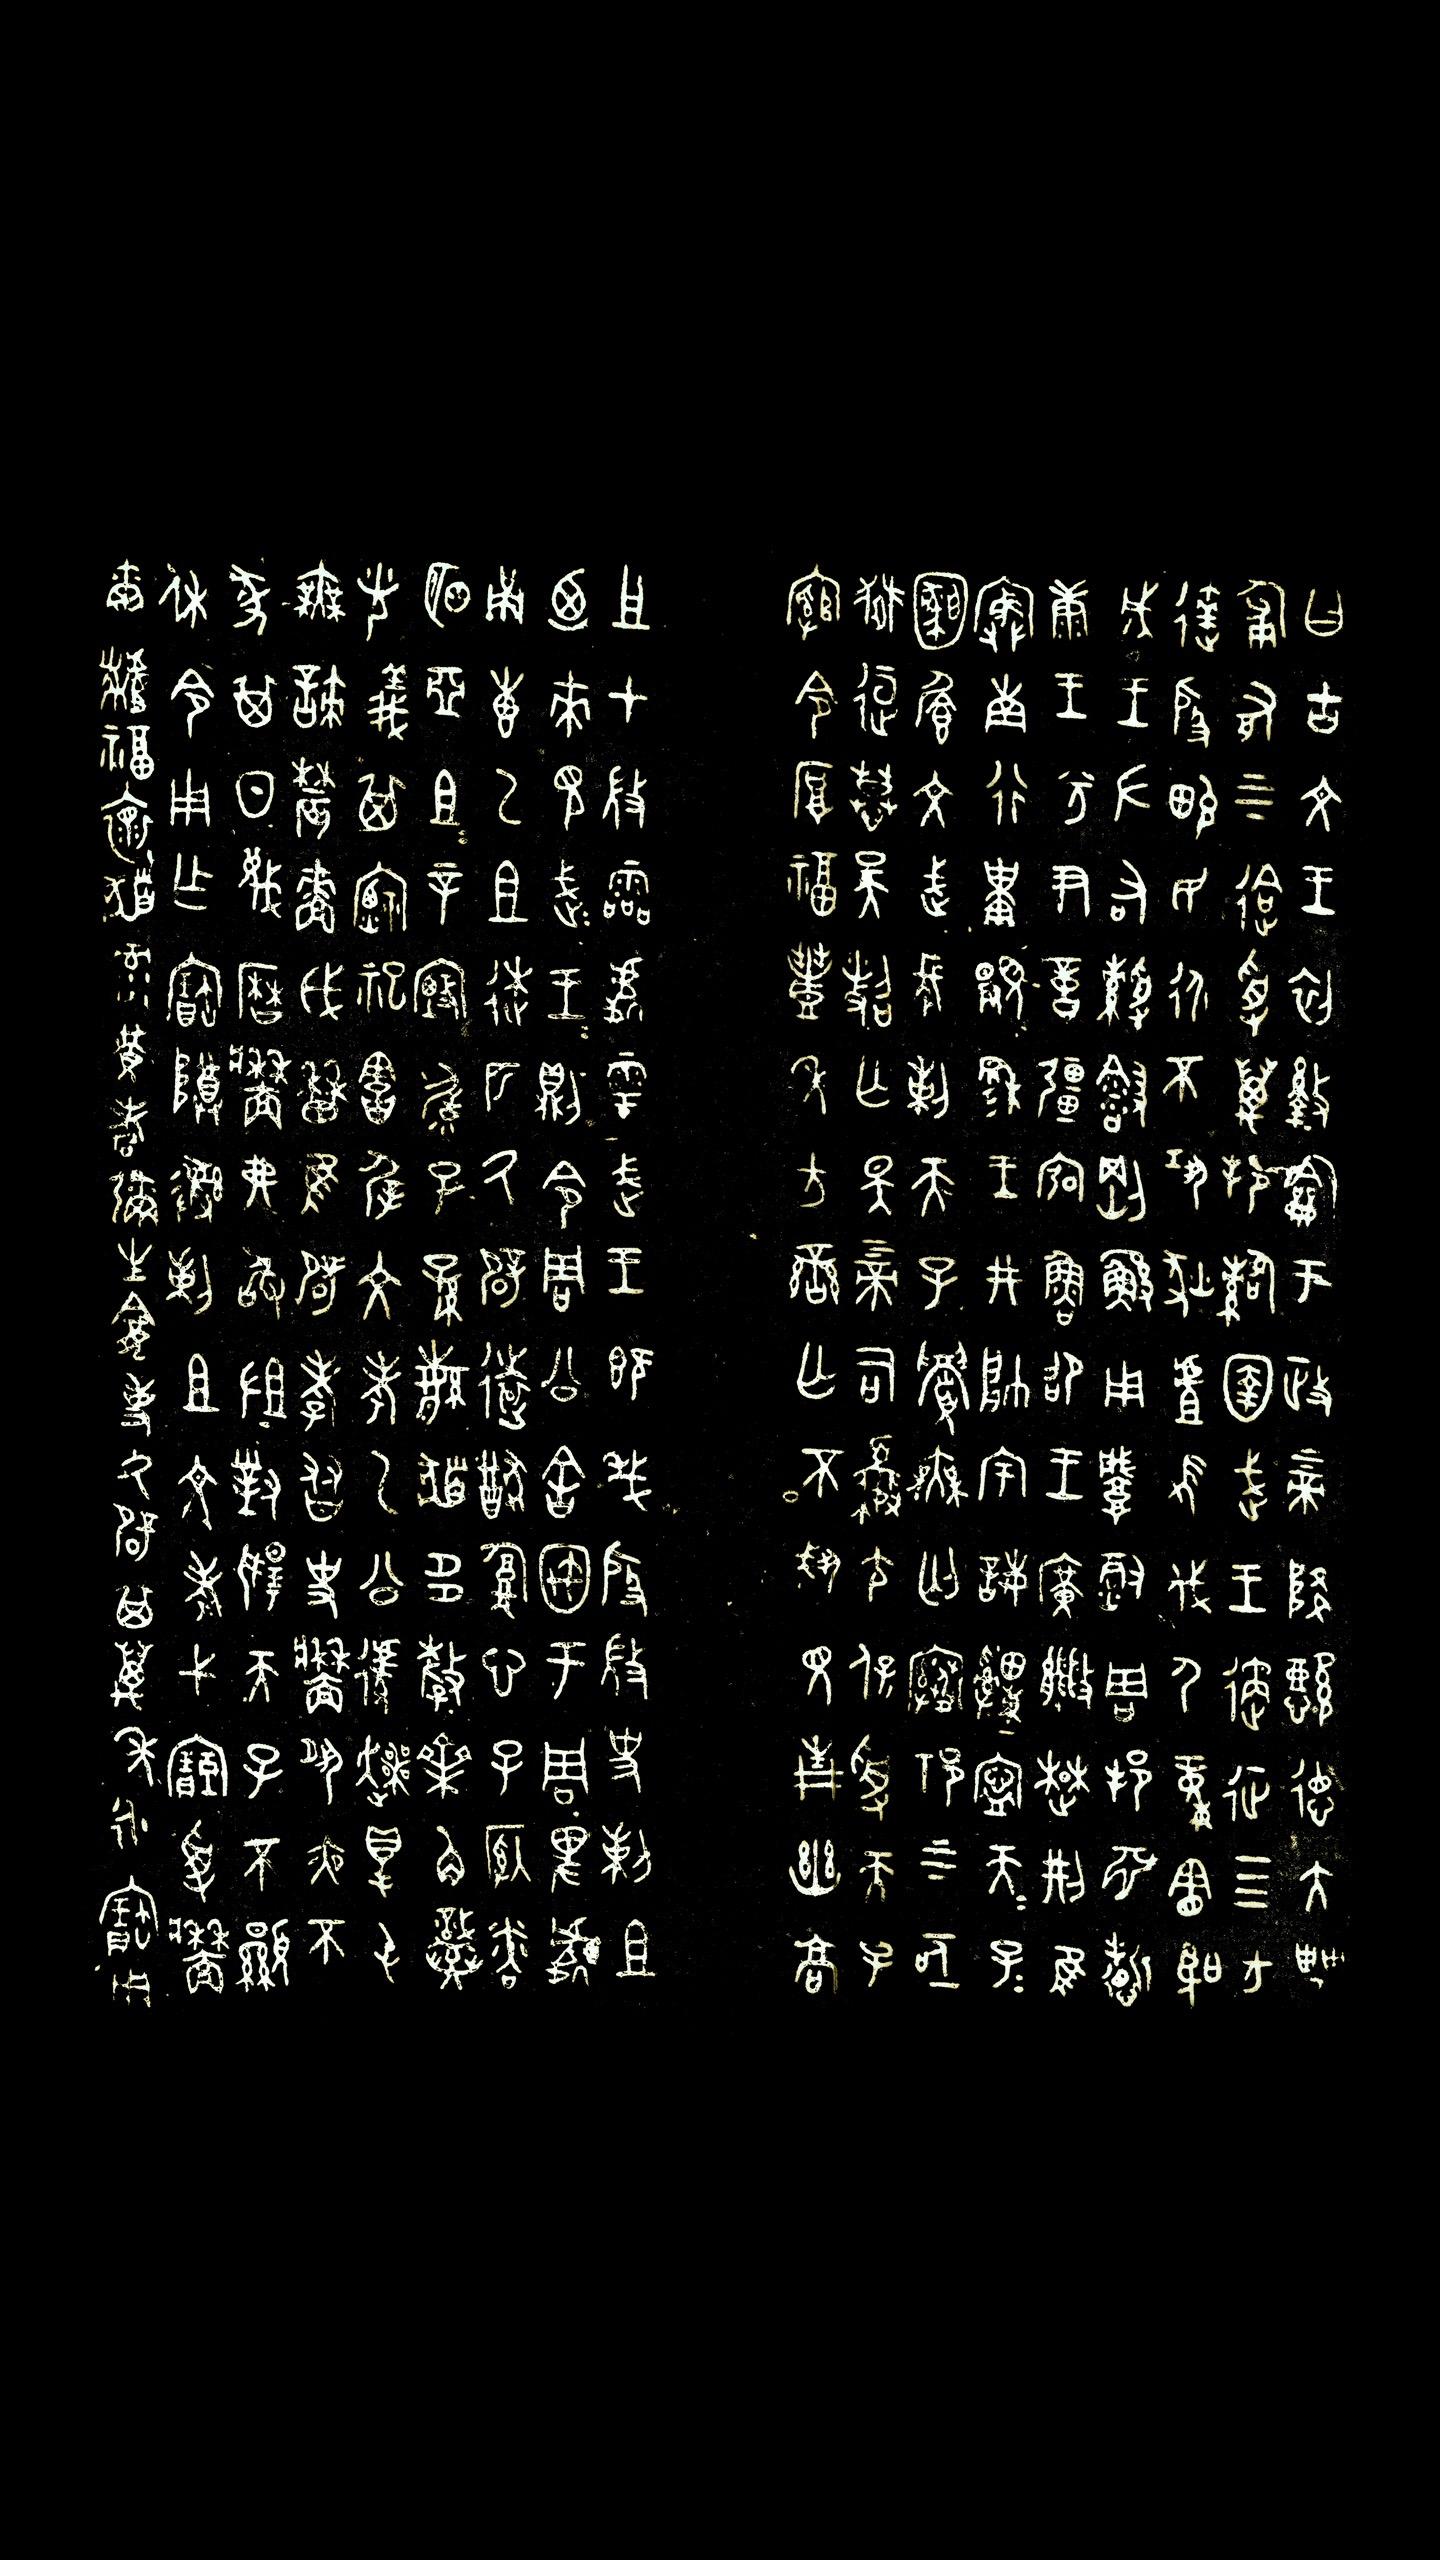 曰古文王初盭龢于政上帝降懿德大甹
匍有上下迨受萬邦䋣圉武王遹征四方
達殷畯民永不巩狄虘𢼸伐尸童憲聖
成王左右綬鯀剛鯀用肇徹周邦淵哲
康王兮尹啻彊宖魯卲王廣敝楚荊隹
寏南行祗顯穆王井帥宇誨申寧天子天子
圝饡文武長剌天子眉無匄𢭏祁上下
亟獄桓慕昊照亡斁上帝司夒尢保受天子
綰令厚福豐年方蠻亡不𢦚見青幽高
且才微霝處雩武王既𢦏殷微史剌且
廼來見武王武王則令周公舍㝢于周卑處
甬惠乙且逨匹厥辟遠猷腹心子納
粦明亞且且辛甄毓子孫繁祓多釐齊角熾
光義其禋祀㝬遟文考乙公遽爽得屯
無諫農穡戉曆隹辟孝友史牆夙夜不
墜其日蔑曆牆弗敢沮對揚天子不顯
休令用乍寶尊彝剌且文考弋受牆
爾福懷福祿黃耇彌生龕事厥辟其萬年永寶用